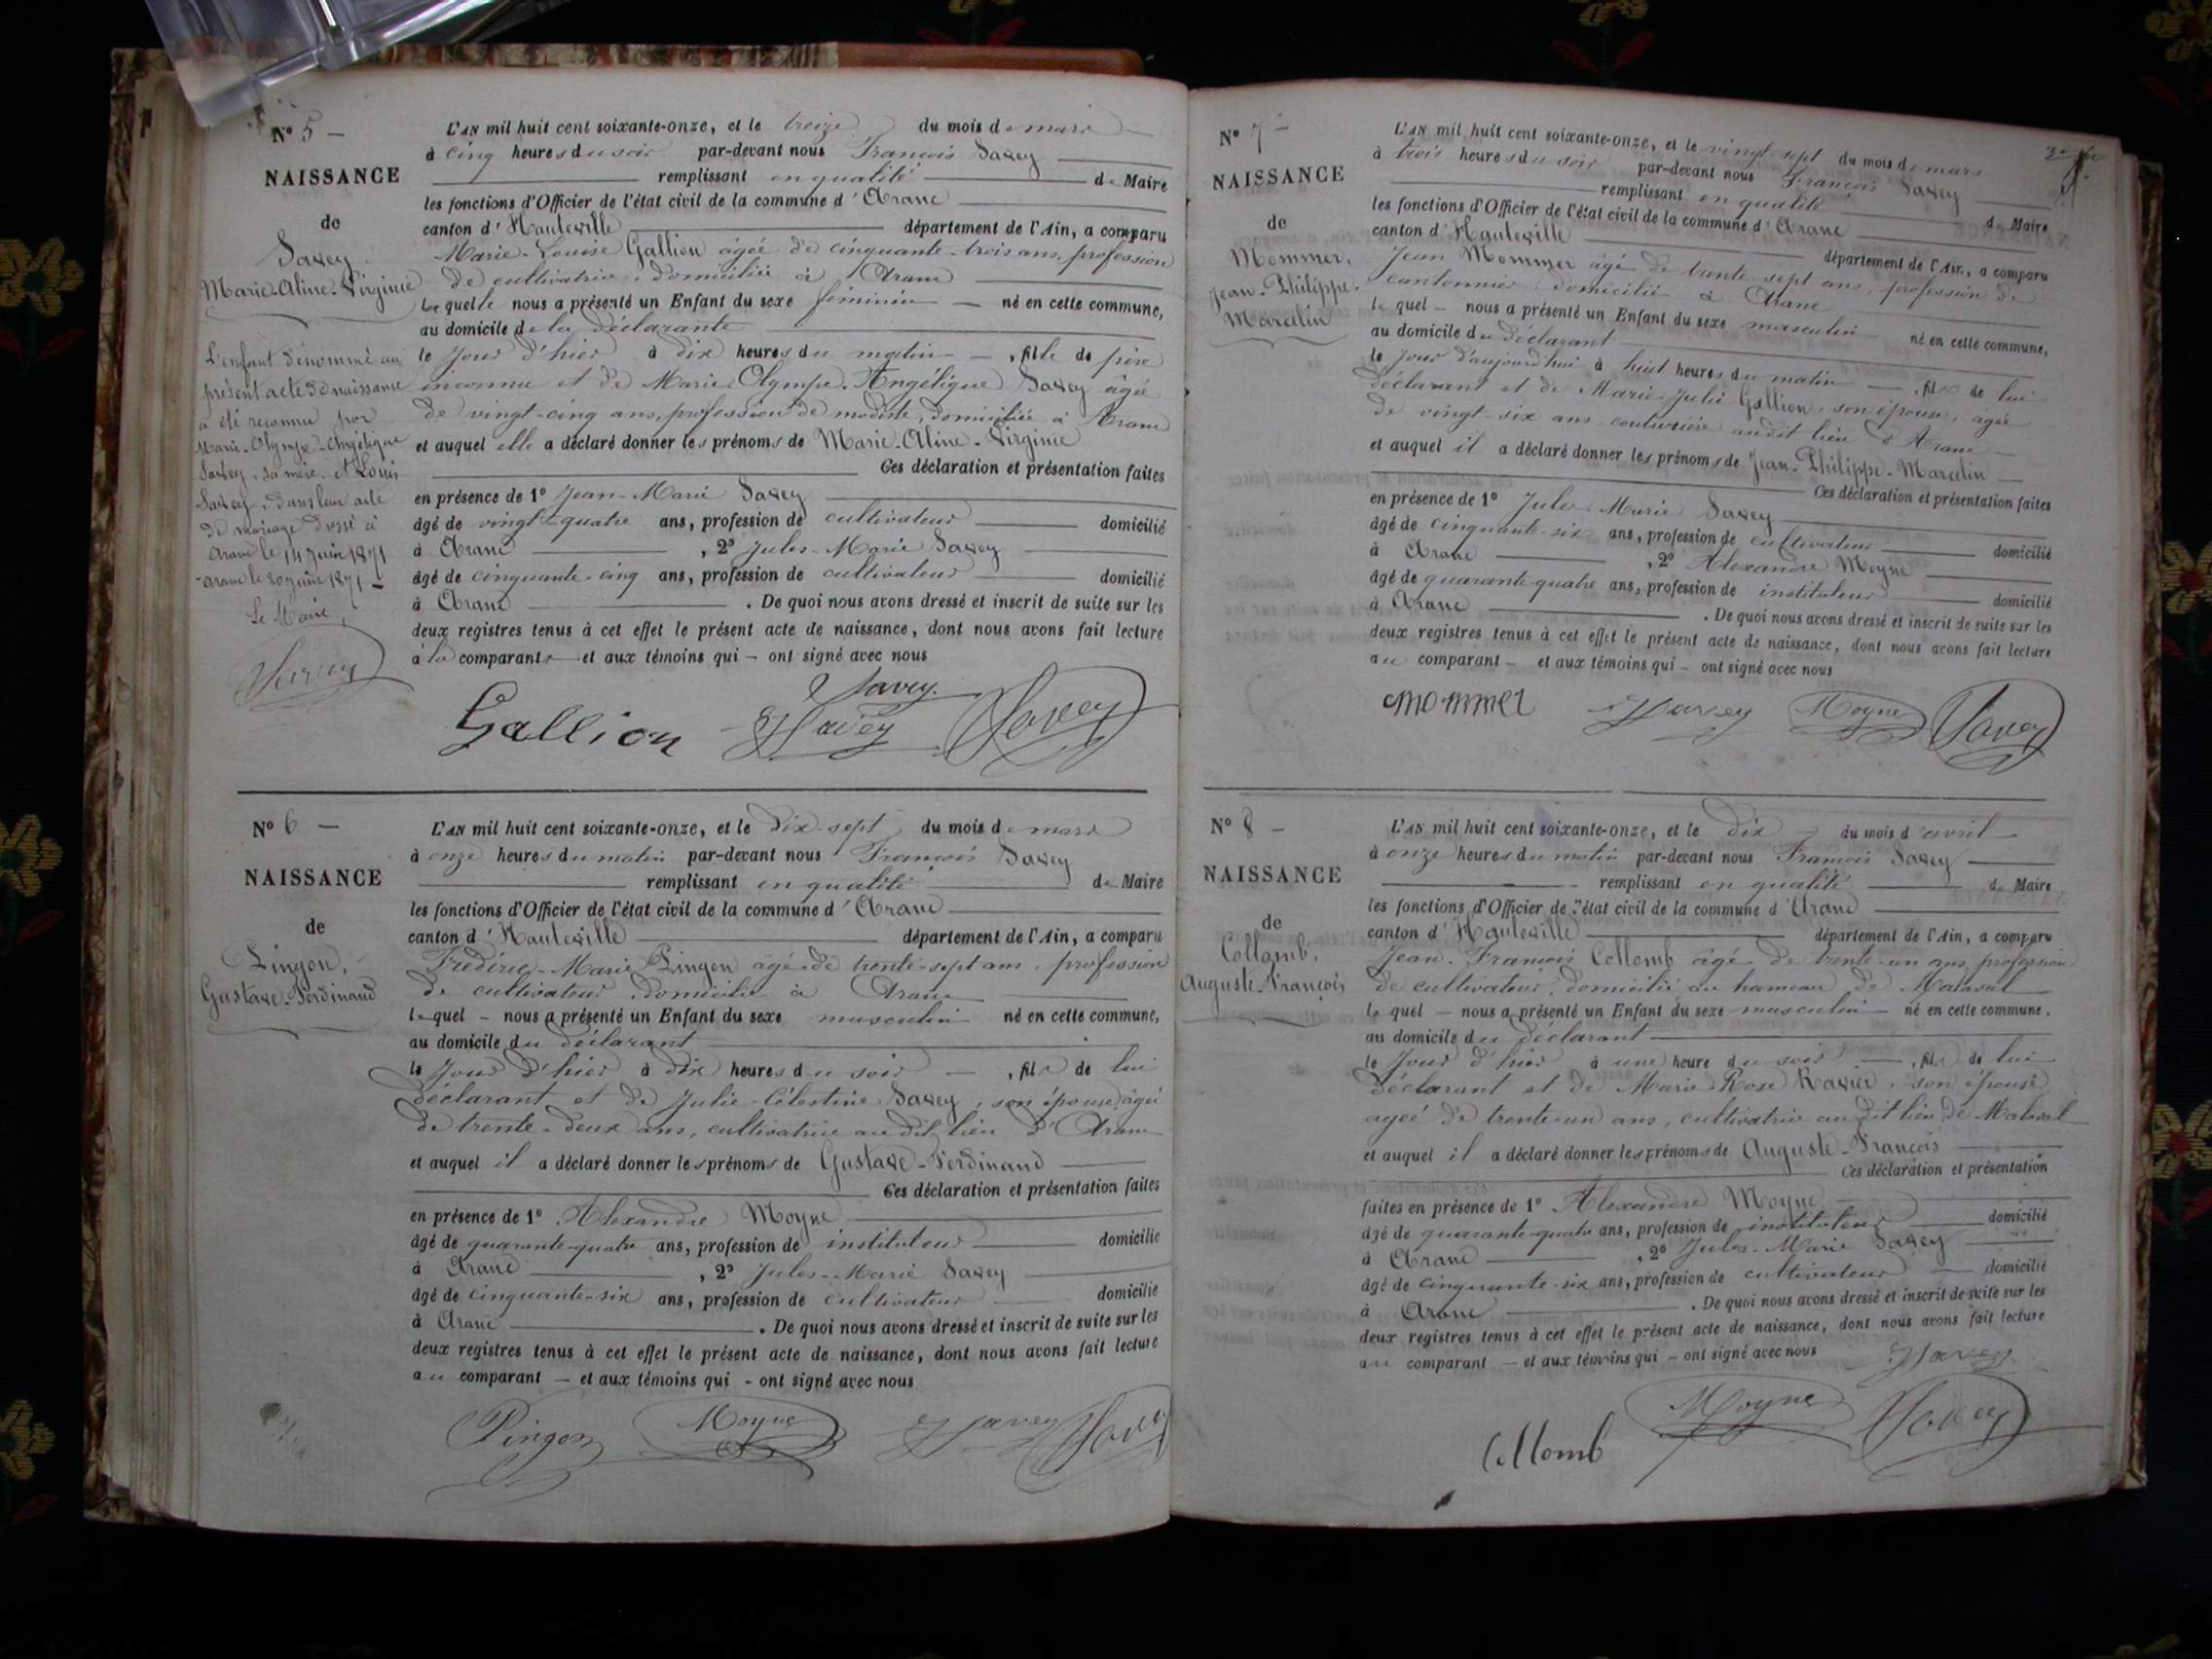 N° 5 —
NAISSANCE
de
Savey
Marie-Aline-Virginie
L'enfant dénommé au
présent acte de naissance
a été reconnu par
Marie-Olympe-Angélique
Savey, sa mère, et Louis
Savey, dans leur acte
de mariage dressé à
Aranc le 14 juin 1871
Aranc le 20 juin 1871 —
Le Maire,
Savey
L'AN mil huit cent soixante-onze, et le treize du mois de mars
à cinq heures du soir par-devant nous François Savey
remplissant en qualité de Maire
les fonctions d'Officier de l'état civil de la commune d'Aranc
canton d'Hauteville département de l'Ain, a comparu
Marie-Louise Gallion âgée de cinquante-trois ans, profession
de cultivatrice, domiciliée à Aranc
laquelle nous a présenté un Enfant du sexe féminin — né en cette commune,
au domicile de la déclarante
le jour d'hier à dix heures du matin — , fille de père
inconnu et de Marie-Olympe-Angélique Savey âgée
de vingt-cinq ans, profession de modiste, domiciliée à Aranc
et auquel elle a déclaré donner les prénoms de Marie-Aline-Virginie
Ces déclaration et présentation faites
en présence de 1° Jean-Marie Savey
âgé de vingt-quatre ans, profession de cultivateur domicilié
à Aranc , 2° Jules-Marie Savey
âgé de cinquante-cinq ans, profession de cultivateur domicilié
à Aranc . De quoi nous avons dressé et inscrit de suite sur les
deux registres tenus à cet effet le présent acte de naissance, dont nous avons fait lecture
à la comparante — et aux témoins qui — ont signé avec nous
Savey
Gallion Savey Savey
N° 6 —
NAISSANCE
de
Pingon,
Gustave-Ferdinand
L'AN mil huit cent soixante-onze, et le dix-sept du mois de mars
à onze heures du matin par-devant nous François Savey
remplissant en qualité de Maire
les fonctions d'Officier de l'état civil de la commune d'Aranc
canton d'Hauteville département de l'Ain, a comparu
Frédéric-Marie Pingon âgé de trente-sept ans, profession
de cultivateur, domicilié à Aranc
lequel — nous a présenté un Enfant du sexe masculin né en cette commune,
au domicile du déclarant
le jour d'hier à dix heures du soir — , fils de lui
déclarant et de Julie-Célestine Savey, son épouse, âgée
de trente-deux ans, cultivatrice au dit lieu d'Aranc
et auquel il a déclaré donner les prénoms de Gustave-Ferdinand
Ces déclaration et présentation faites
en présence de 1° Alexandre Moyne
âgé de quarante-quatre ans, profession de instituteur domicilié
à Aranc , 2° Jules-Marie Savey
âgé de cinquante-six ans, profession de cultivateur domicilié
à Aranc . De quoi nous avons dressé et inscrit de suite sur les
deux registres tenus à cet effet le présent acte de naissance, dont nous avons fait lecture
au comparant — et aux témoins qui - ont signé avec nous
Pingon Moyne Savey Savey
N° 7 —
NAISSANCE
de
Mommer,
Jean-Philippe-
Marcelin
L'AN mil huit cent soixante-onze, et le vingt-sept du mois de mars
à trois heures du soir par-devant nous François Savey
remplissant en qualité de Maire
les fonctions d'Officier de l'état civil de la commune d'Aranc
canton d'Hauteville département de l'Ain, a comparu
Jean Mommer âgé de trente-sept ans, profession de
cantonnier, domicilié à Aranc
lequel — nous a présenté un Enfant du sexe masculin né en cette commune,
au domicile du déclarant
le jour d'aujourd'hui à huit heures du matin — , fils de lui
déclarant et de Marie-Julie Gallion, son épouse, âgée
de vingt-six ans, couturière audit lieu d'Aranc
et auquel il a déclaré donner les prénoms de Jean-Philippe-Marcelin —
Ces déclaration et présentation faites
en présence de 1° Jules-Marie Savey
âgé de cinquante-six ans, profession de cultivateur domicilié
à Aranc , 2° Alexandre Moyne
âgé de quarante-quatre ans, profession de instituteur domicilié
à Aranc . De quoi nous avons dressé et inscrit de suite sur les
deux registres tenus à cet effet le présent acte de naissance, dont nous avons fait lecture
au comparant — et aux témoins qui — ont signé avec nous
Mommer Savey Moyne Savey
N° 8 —
NAISSANCE
de
Collomb,
Auguste-François
L'AN mil huit cent soixante-onze, et le dix du mois d'avril
à onze heures du matin par-devant nous François Savey
remplissant en qualité de Maire
les fonctions d'Officier de l'état civil de la commune d'Aranc
canton d'Hauteville département de l'Ain, a comparu
Jean-François Collomb âgé de trente-un ans, profession
de cultivateur, domicilié au hameau de Malaval
lequel — nous a présenté un Enfant du sexe masculin — né en cette commune,
au domicile du déclarant
le jour d'hier à une heure du soir — , fils de lui
déclarant et de Marie-Rose Ravier, son épouse,
agée de trente-un ans, cultivatrice au dit lieu de Malaval
et auquel il a déclaré donner les prénoms de Auguste-François
Ces déclaration et présentation
faites en présence de 1° Alexandre Moyne
âgé de quarante-quatre ans, profession de instituteur domicilié
à Aranc , 2° Jules-Marie Savey
âgé de cinquante-six ans, profession de cultivateur domicilié
à Aranc . De quoi nous avons dressé et inscrit de suite sur les
deux registres tenus à cet effet le présent acte de naissance, dont nous avons fait lecture
au comparant — et aux témoins qui — ont signé avec nous
Savey
Collomb Moyne Savey